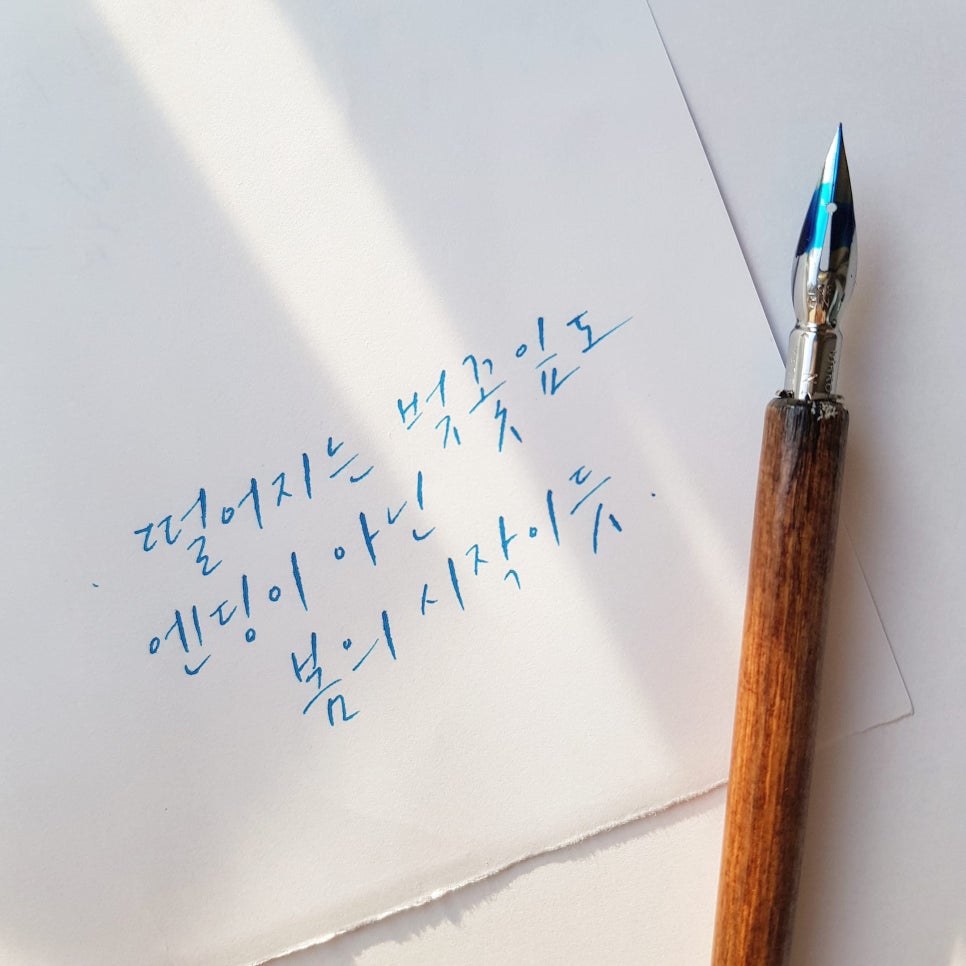 떨어지는 벚꽃잎도
엔딩이 아닌
봄의 시작이듯.